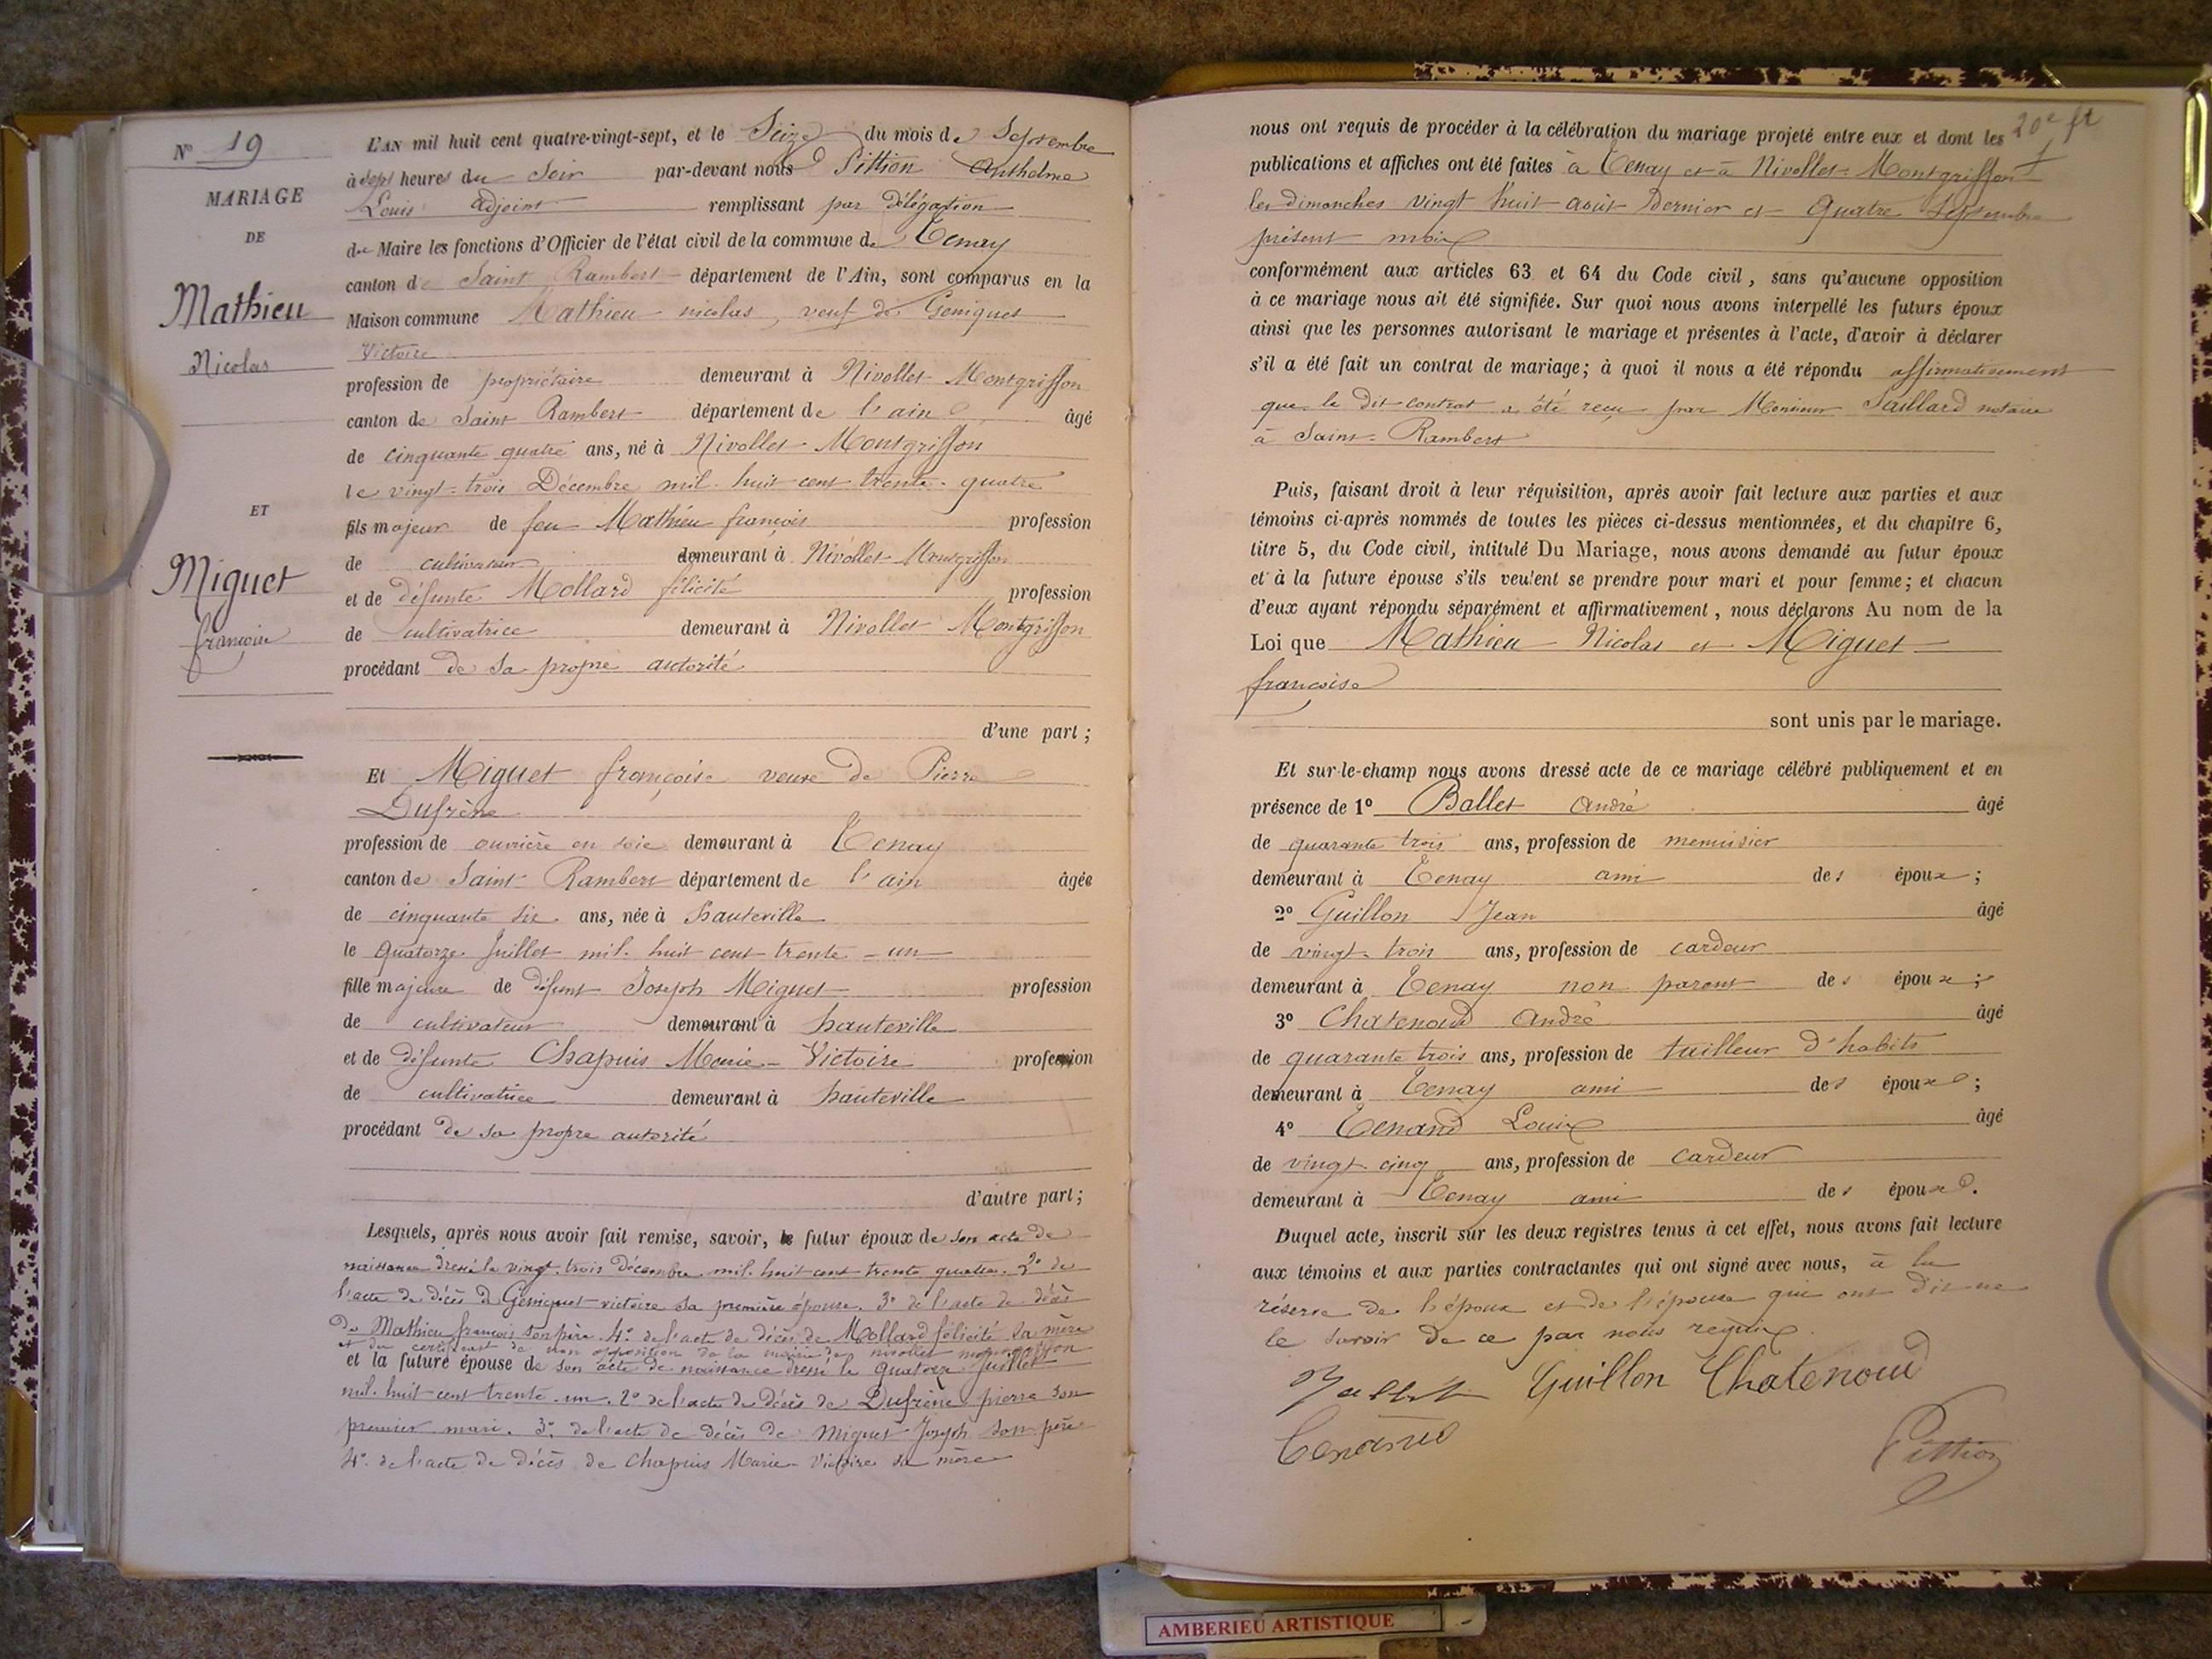 N° 19
MARIAGE
DE
Mathieu
Nicolas
ET
Miguet
françoise
L'AN mil huit cent quatre-vingt-sept, et le Seize du mois de Septembre
à sept heures du Soir par-devant nous Pittion Anthelme
Louis adjoint remplissant par délégation
du Maire les fonctions d'Officier de l'état civil de la commune de Tenay
canton de Saint Rambert département de l'Ain, sont comparus en la
Maison commune Mathieu nicolas, veuf de Geniquet
Victoire
profession de propriétaire demeurant à Nivollet-Montgriffon
canton de Saint Rambert département de l'ain âgé
de cinquante quatre ans, né à Nivollet-Montgriffon
le vingt-trois Décembre mil-huit cent trente-quatre
fils majeur de feu Mathieu françois profession
de cultivateur demeurant à Nivollet-Montgriffon
et de défunte Mollard félicité profession
de cultivatrice demeurant à Nivollet Montgriffon
procédant de sa propre autorité
d'une part ;
Et Miguet françoise veuve de Pierre
Dufrène
profession de ouvrière en soie demeurant à Tenay
canton de Saint Rambert département de l'ain âgée
de cinquante six ans, née à hauteville
le quatorze Juillet mil-huit cent trente-un
fille majeure de défunt Joseph Miguet profession
de cultivateur demeurant à hauteville
et de défunte Chapuis Marie-Victoire profession
de cultivatrice demeurant à hauteville
procédant de sa propre autorité
d'autre part ;
Lesquels, après nous avoir fait remise, savoir, le futur époux de son acte de
naissance dressé le vingt-trois Décembre mil-huit cent trente quatre. 2° de
l'acte de décès de Geniquet victoire sa première épouse. 3° de l'acte de décès
de Mathieu françois son père. 4° de l'acte de décès de Mollard félicité sa mère
et du certificat de non opposition de la mairie de nivollet montgriffon
et la future épouse de son acte de naissance dressé le quatorze Juillet
mil-huit cent trente-un. 2° de l'acte de décès de Dufrène pierre son
premier mari. 3° de l'acte de décès de Miguet Joseph son père
4° de l'acte de décès de Chapuis Marie-Victoire sa mère
20e ft
nous ont requis de procéder à la célébration du mariage projeté entre eux et dont les
publications et affiches ont été faites à Tenay et à Nivollet-Montgriffon
les dimanches vingt huit août dernier et quatre Septembre
présent mois
conformément aux articles 63 et 64 du Code civil, sans qu'aucune opposition
à ce mariage nous ait été signifiée. Sur quoi nous avons interpellé les futurs époux
ainsi que les personnes autorisant le mariage et présentes à l'acte, d'avoir à déclarer
s'il a été fait un contrat de mariage ; à quoi il nous a été répondu affirmativement
que le dit contrat a été reçu par Monsieur Saillard notaire
à Saint-Rambert
Puis, faisant droit à leur réquisition, après avoir fait lecture aux parties et aux
témoins ci-après nommés de toutes les pièces ci-dessus mentionnées, et du chapitre 6,
titre 5, du Code civil, intitulé Du Mariage, nous avons demandé au futur époux
et à la future épouse s'ils veulent se prendre pour mari et pour femme ; et chacun
d'eux ayant répondu séparément et affirmativement, nous déclarons Au nom de la
Loi que Mathieu Nicolas et Miguet
françoise
sont unis par le mariage.
Et sur-le-champ nous avons dressé acte de ce mariage célébré publiquement et en
présence de 1° Ballet André âgé
de quarante trois ans, profession de menuisier
demeurant à Tenay ami des époux ;
2° Guillon Jean âgé
de vingt-trois ans, profession de cardeur
demeurant à Tenay non parent des époux ;
3° Chatenoud André âgé
de quarante trois ans, profession de tailleur d'habits
demeurant à Tenay ami des époux ;
4° Tenand Louis âgé
de vingt-cinq ans, profession de cardeur
demeurant à Tenay ami des époux.
Duquel acte, inscrit sur les deux registres tenus à cet effet, nous avons fait lecture
aux témoins et aux parties contractantes qui ont signé avec nous, à la
réserve de l'époux et de l'épouse qui ont dit ne
le savoir de ce par nous requis.
Ballet Guillon Chatenoud
Tenand
Pittion
AMBERIEU ARTISTIQUE